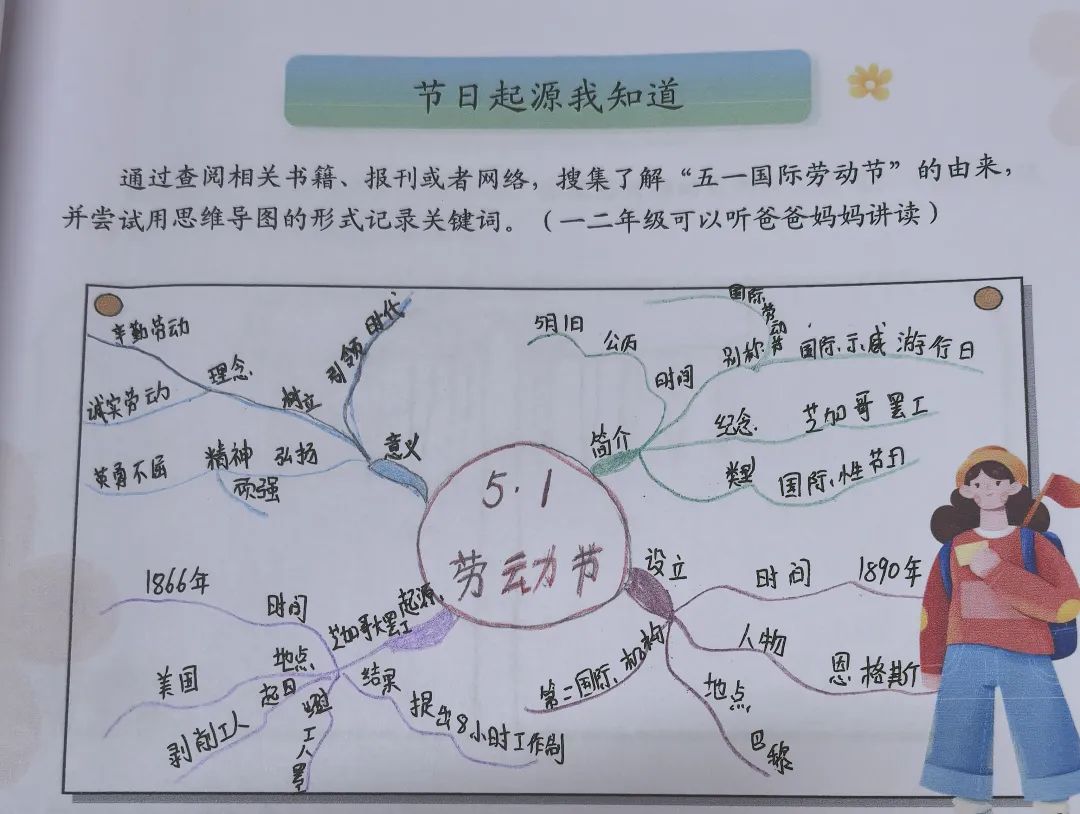 节日起源我知道
通过查阅相关书籍、报刊或者网络，搜集了解“五一国际劳动节”的由来，
并尝试用思维导图的形式记录关键词。（一二年级可以听爸爸妈妈讲读）
5·1
劳动节
简介
时间
公历
5月1日
别称
国际劳动节
国际示威游行日
纪念
芝加哥罢工
类型
国际性节日
设立
时间
1890年
人物
恩格斯
地点
巴黎
机构
第二国际
起源
芝加哥大罢工
时间
1866年
地点
美国
剥削工人
工人罢
结果
提出8小时工作制
意义
引领时代
树立
理念
辛勤劳动
诚实劳动
弘扬
精神
英勇不屈
顽强